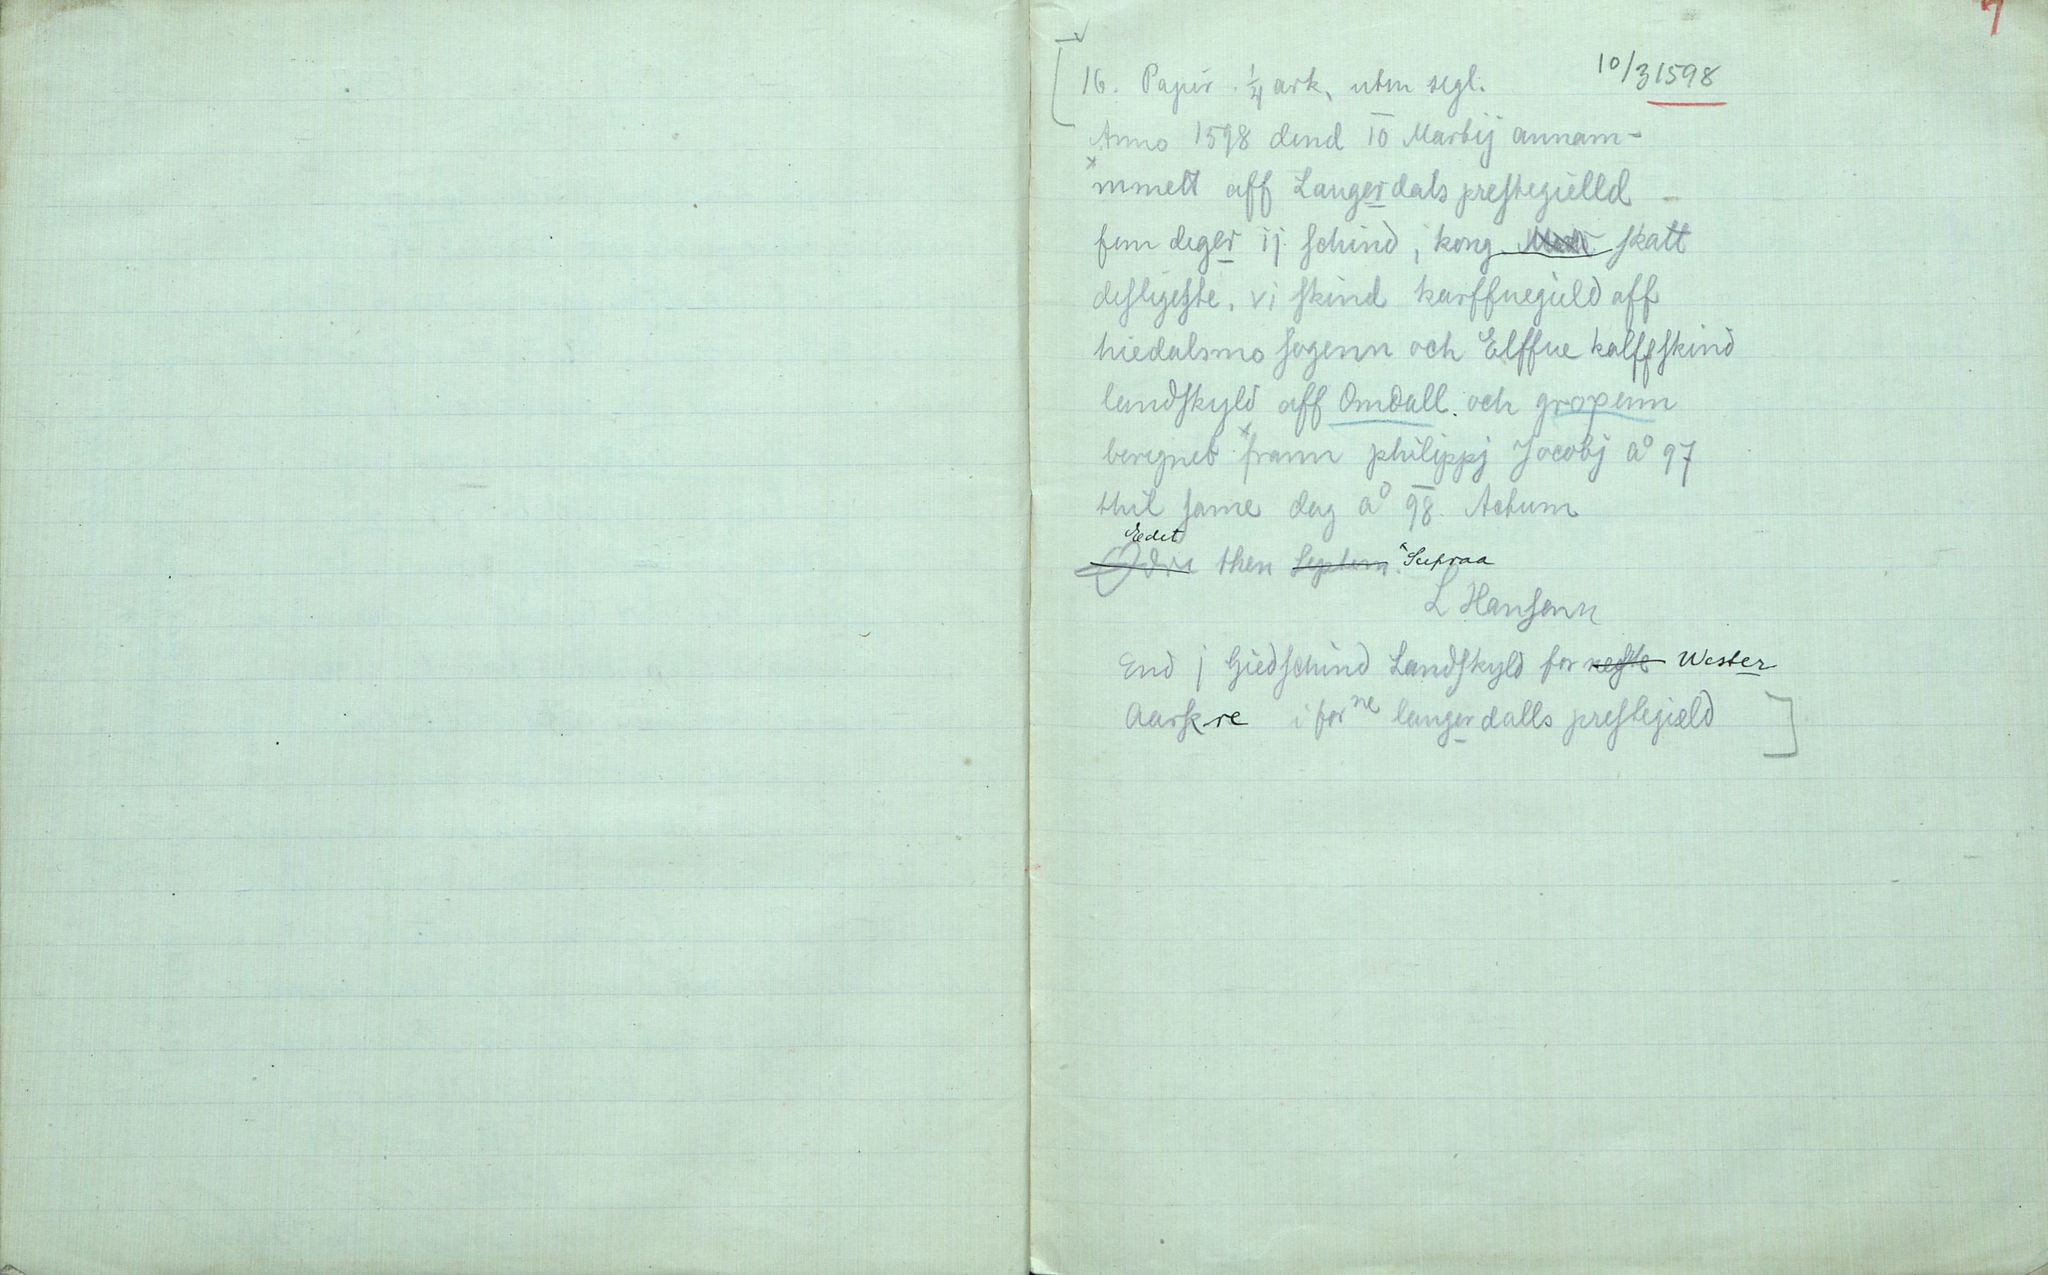 7
16. Papir. ¼ ark, uten segl.
10/3 1598
Anno 1598 dend 10 Martij annam-
mmett aff Laugerdals prestegielld
fem deger ij schind, i kong skatt
desligeste, vi skind karffuegield aff
hiedalsmo sogenn och Elffue kalffskind
landskyld aff Omdall. och gropenn
beregned frann philippj Jacobj ao 97
thil same dag ao 98. Actum
Edet
then Septem. Supraa
L Hansenn
End j Giedschind Landskyld for Wester
Aarskre i forne laugerdalls prestegield